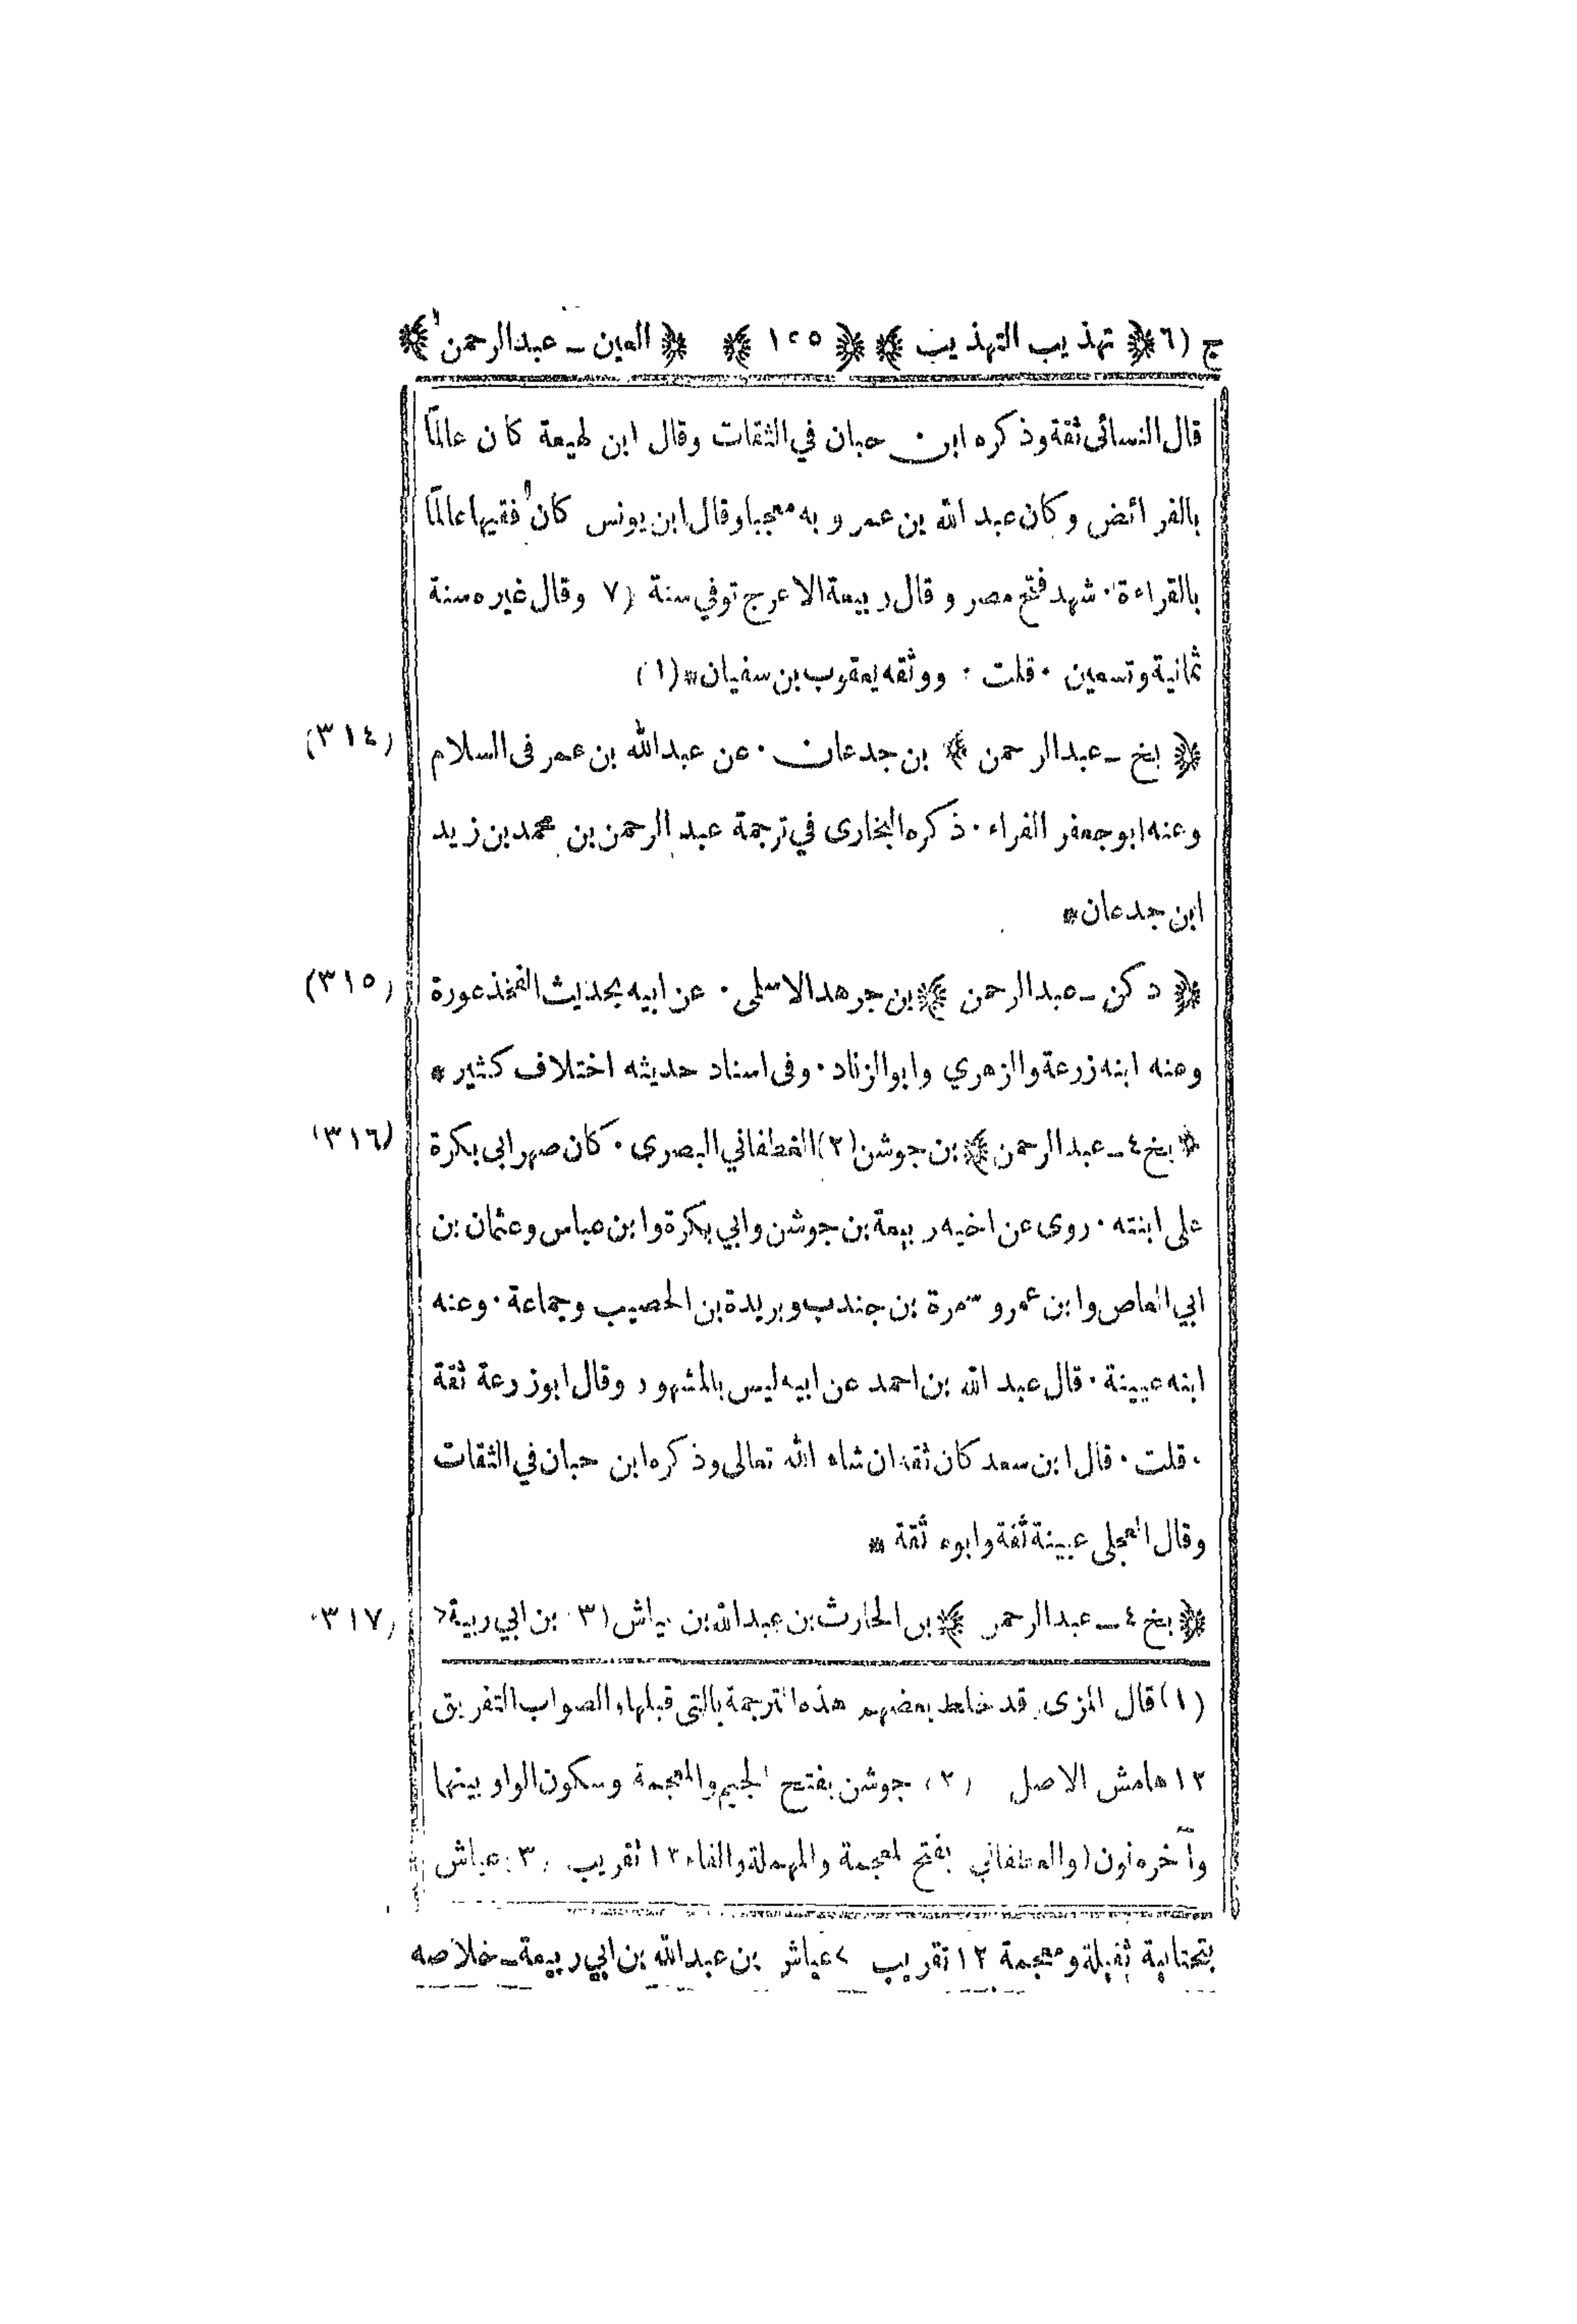 ج (٦) ﴿ تهذيب التهذيب ﴾ ﴿ ١٥٥ ﴾ ﴿ العين ـ عبدالرحمن ﴾
قال النسائى ثقة وذكره ابن حبان في الثقات وقال ابن لهيعة كان عالمًا
بالفرائض وكان عبد الله بن عمرو به معجبا وقال ابن يونس كان فقيها عالمًا
بالقراءة ٠ شهد فتح مصر وقال ربيعة الاعرج توفي سنة (٧ وقال غيره سنة
ثمانية وتسعين ٠ قلت ٠ ووثقه يعقوب بن سفيان * (١)
(٣١٤) ﴿ بخ ـ عبدالرحمن ﴾ بن جدعان ٠ عن عبدالله بن عمر فى السلام
وعنه ابوجعفر الفراء ٠ ذكره البخارى في ترجمة عبد الرحمن بن محمد بن زيد
ابن جدعان *
(٣١٥) ﴿ د كن ـ عبدالرحمن ﴾ بن جرهد الاسلمى ٠ عن ابيه بحديث الفخذ عورة
وعنه ابنه زرعة والزهري وابوالزناد ٠ وفى اسناد حديثه اختلاف كثير *
(٣١٦) ﴿ بخ ٤ ـ عبدالرحمن ﴾ بن جوشن (٢) الغطفاني البصرى ٠ كان صهر ابى بكرة
على ابنته ٠ روى عن اخيه ربيعة بن جوشن وابي بكرة وابن عباس وعثمان بن
ابي العاص وابن عمر وسمرة بن جندب وبريدة بن الحصيب وجماعة ٠ وعنه
ابنه عيينة ٠ قال عبد الله بن احمد عن ابيه ليس بالمشهور وقال ابوزرعة ثقة
٠ قلت ٠ قال ابن سعد كان ثقة ان شاه الله تعالى وذكره ابن حبان في الثقات
وقال العجلى عيينة ثقة وابوه ثقة *
(٣١٧) ﴿ بخ ٤ ـ عبدالرحمن ﴾ بن الحارث بن عبدالله بن عياش (٣) بن ابي ربية>
(١) قال المزى قد خلط بعضهم هذه الترجمة بالتى قبلها والصواب التفريق
١٢ هامش الاصل (٢) جوشن بفتح الجيم والمعجمة وسكون الواو بينهما
وآخره نون (والغطفاني بفتح المعجمة والمهملة والفاء ١٢ تقريب (٣) عياش
بتحتانية ثقيلة ومعجمة ١٢ تقريب > عياش بن عبدالله بن ابي ربيعة ـ خلاصه